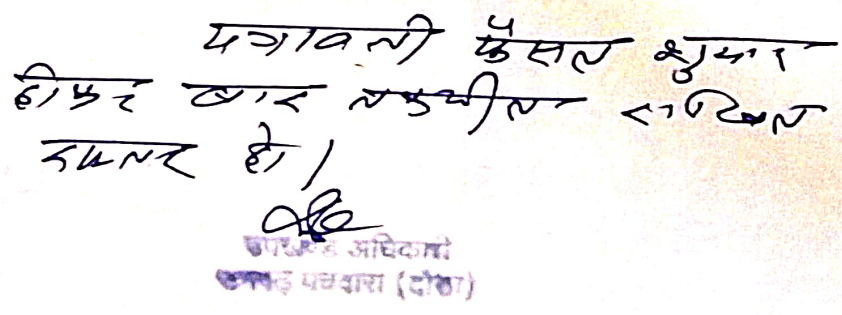 पत्रावली फैसल शुमार
होकर बाद तकमील दाखिल
दफ्तर हो।
उपखण्ड अधिकारी
रामगढ़ पचवारा (दौसा)